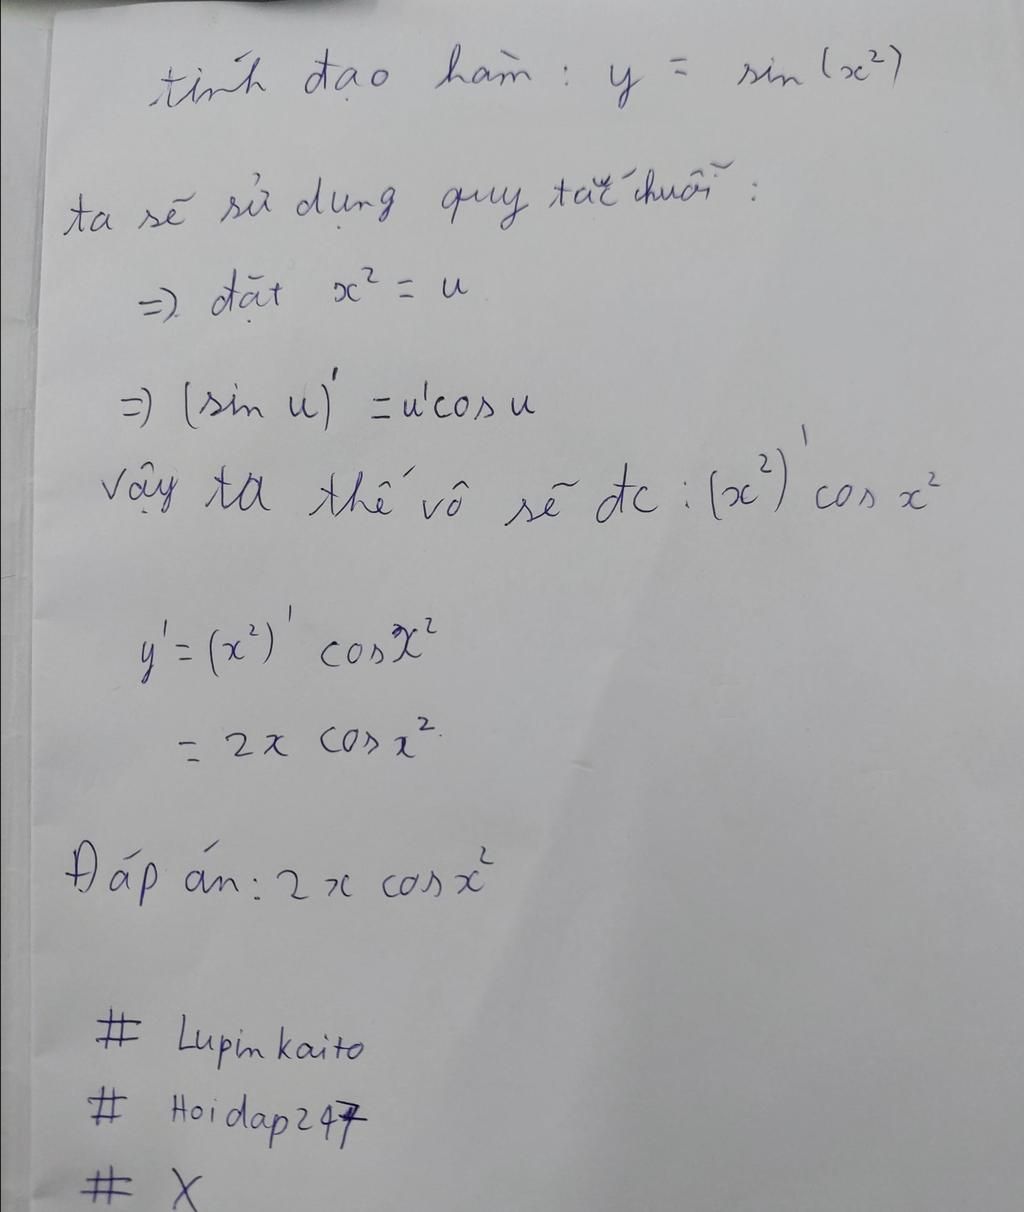 tính đạo hàm : y = sin (x²)
ta sẽ sử dụng quy tắc chuỗi :
=> đặt x² = u
=> (sin u)' = u'cos u
vậy ta thế vô sẽ đc : (x²)' cos x²
y' = (x²)' cos x²
= 2x cos x²
Đáp án : 2x cos x²
# Lupin kaito
# Hoidap247
# X